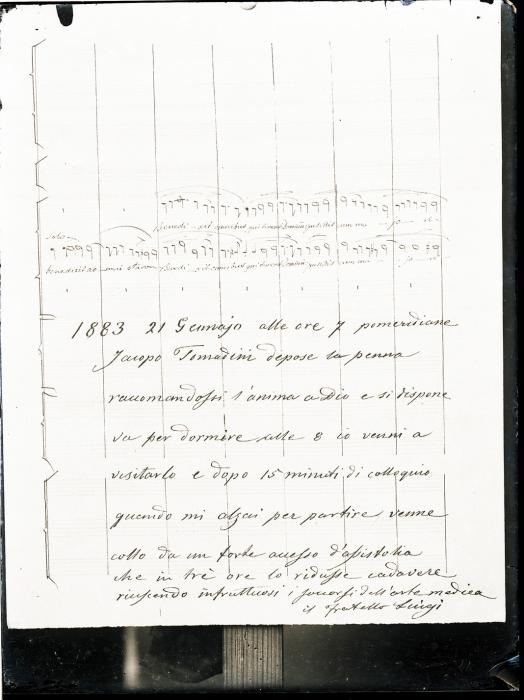 solo
1883 21 Gennajo alle ore 7 pomeridiane
Jacopo Tomadini depose la penna
raccomandossi l'anima a Dio e si dispone
va per dormire alle 8 io venni a
visitarlo e dopo 15 minuti di colloquio
quando mi alzai per partire venne
colto da un forte accesso d'asistolia
che in tre ore lo ridusse cadavere
riuscendo infruttuosi i soccorsi dell'arte medica
il fratello Luigi